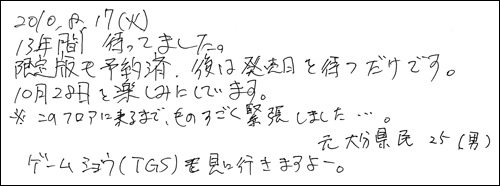 2010.8.17(火)
13年間、待ってました。
限定版も予約済、後は発売日を待つだけです。
10月28日を楽しみにしています。
※このフロアに来るまで、ものすごく緊張しました…。
元大分県民 25(男)
ゲームショウ(TGS)も見に行きますよー。